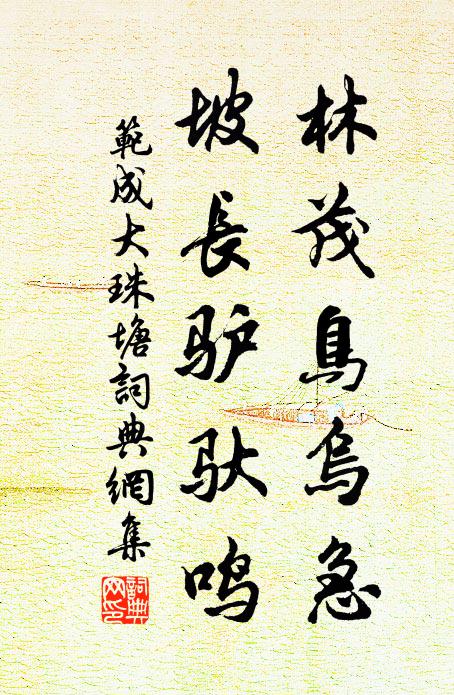 林茂鳥烏急
坡長驴驮鸣
範成大珠塘詞典網集
詞典网印